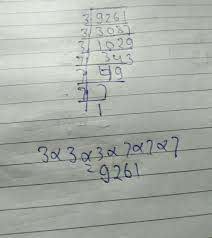 3 9261
3 3087
3 1029
7 343
7 49
7 7
1
3×3×3×7×7×7
=9261